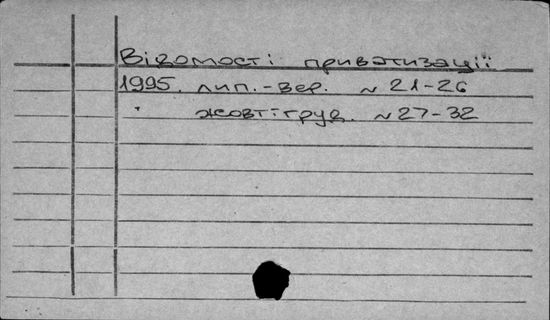 Відомості приватизації
1995. лип.-вер. N 21-26
" жовт-груд. N 27-32